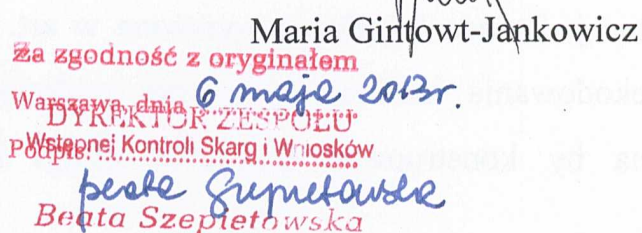 Maria Gintowt-Jankowicz
Za zgodność z oryginałem
Warszawa, dnia 6 maja 2013r.
DYREKTOR ZESPOŁU
Wstępnej Kontroli Skarg i Wniosków
Podpis
Beata Szepietowska
Beata Szepietowska